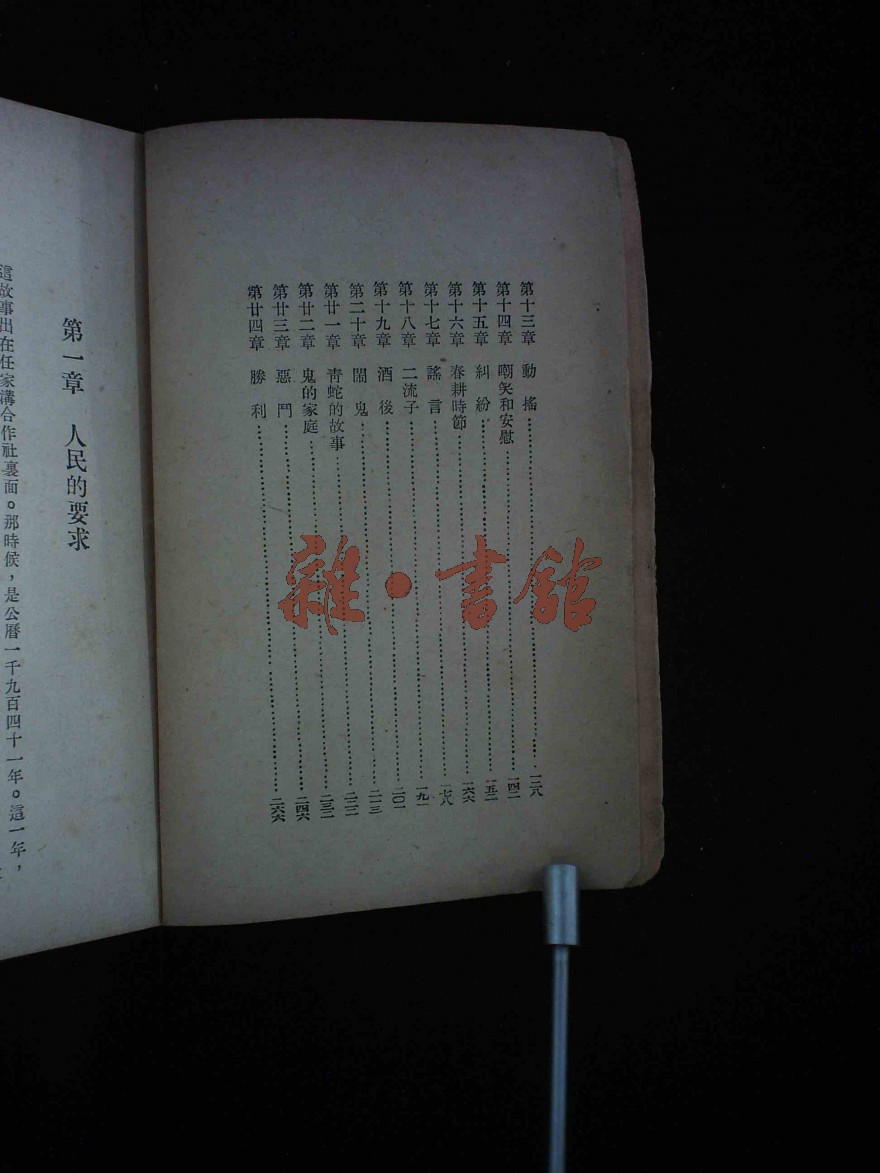 第十三章 動搖……一二八
第十四章 嘲笑和安慰……一四二
第十五章 糾紛……一五二
第十六章 春耕時節……一六六
第十七章 謠言……一七八
第十八章 二流子……一九一
第十九章 酒後……二〇一
第二十章 鬧鬼……二一三
第廿一章 靑蛇的故事
第廿二章 鬼的家庭
第廿三章 惡鬥……二四六
第廿四章 勝利……二六六
雜·書館
第一章 人民的要求
這故事出在任家溝合作社裏面。那時候，是公曆一千九百四十一年。這一年，